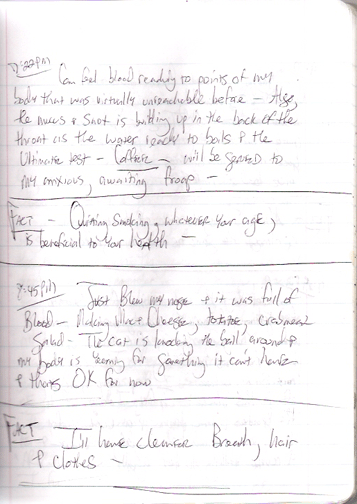 7:22PM
Can feel blood reaching to points of my
body that was virtually unreachable before - Also,
the mucus & snot is building up in the back of the
throat as the water reaches to boils & the
Ultimate test - Coffee - will be served to
my anxious, awaiting troop -
FACT - Quitting Smoking, whatever your age,
is beneficial to your health -
8:45PM
Just Blew my nose & it was full of
Blood - Making Mac & Cheese, potatoe, crabmeat
Salad - The cat is knocking the ball around &
my body is yearning for something it can't have
& that's OK for now
FACT I'll have cleaner Breath, hair
& clothes -